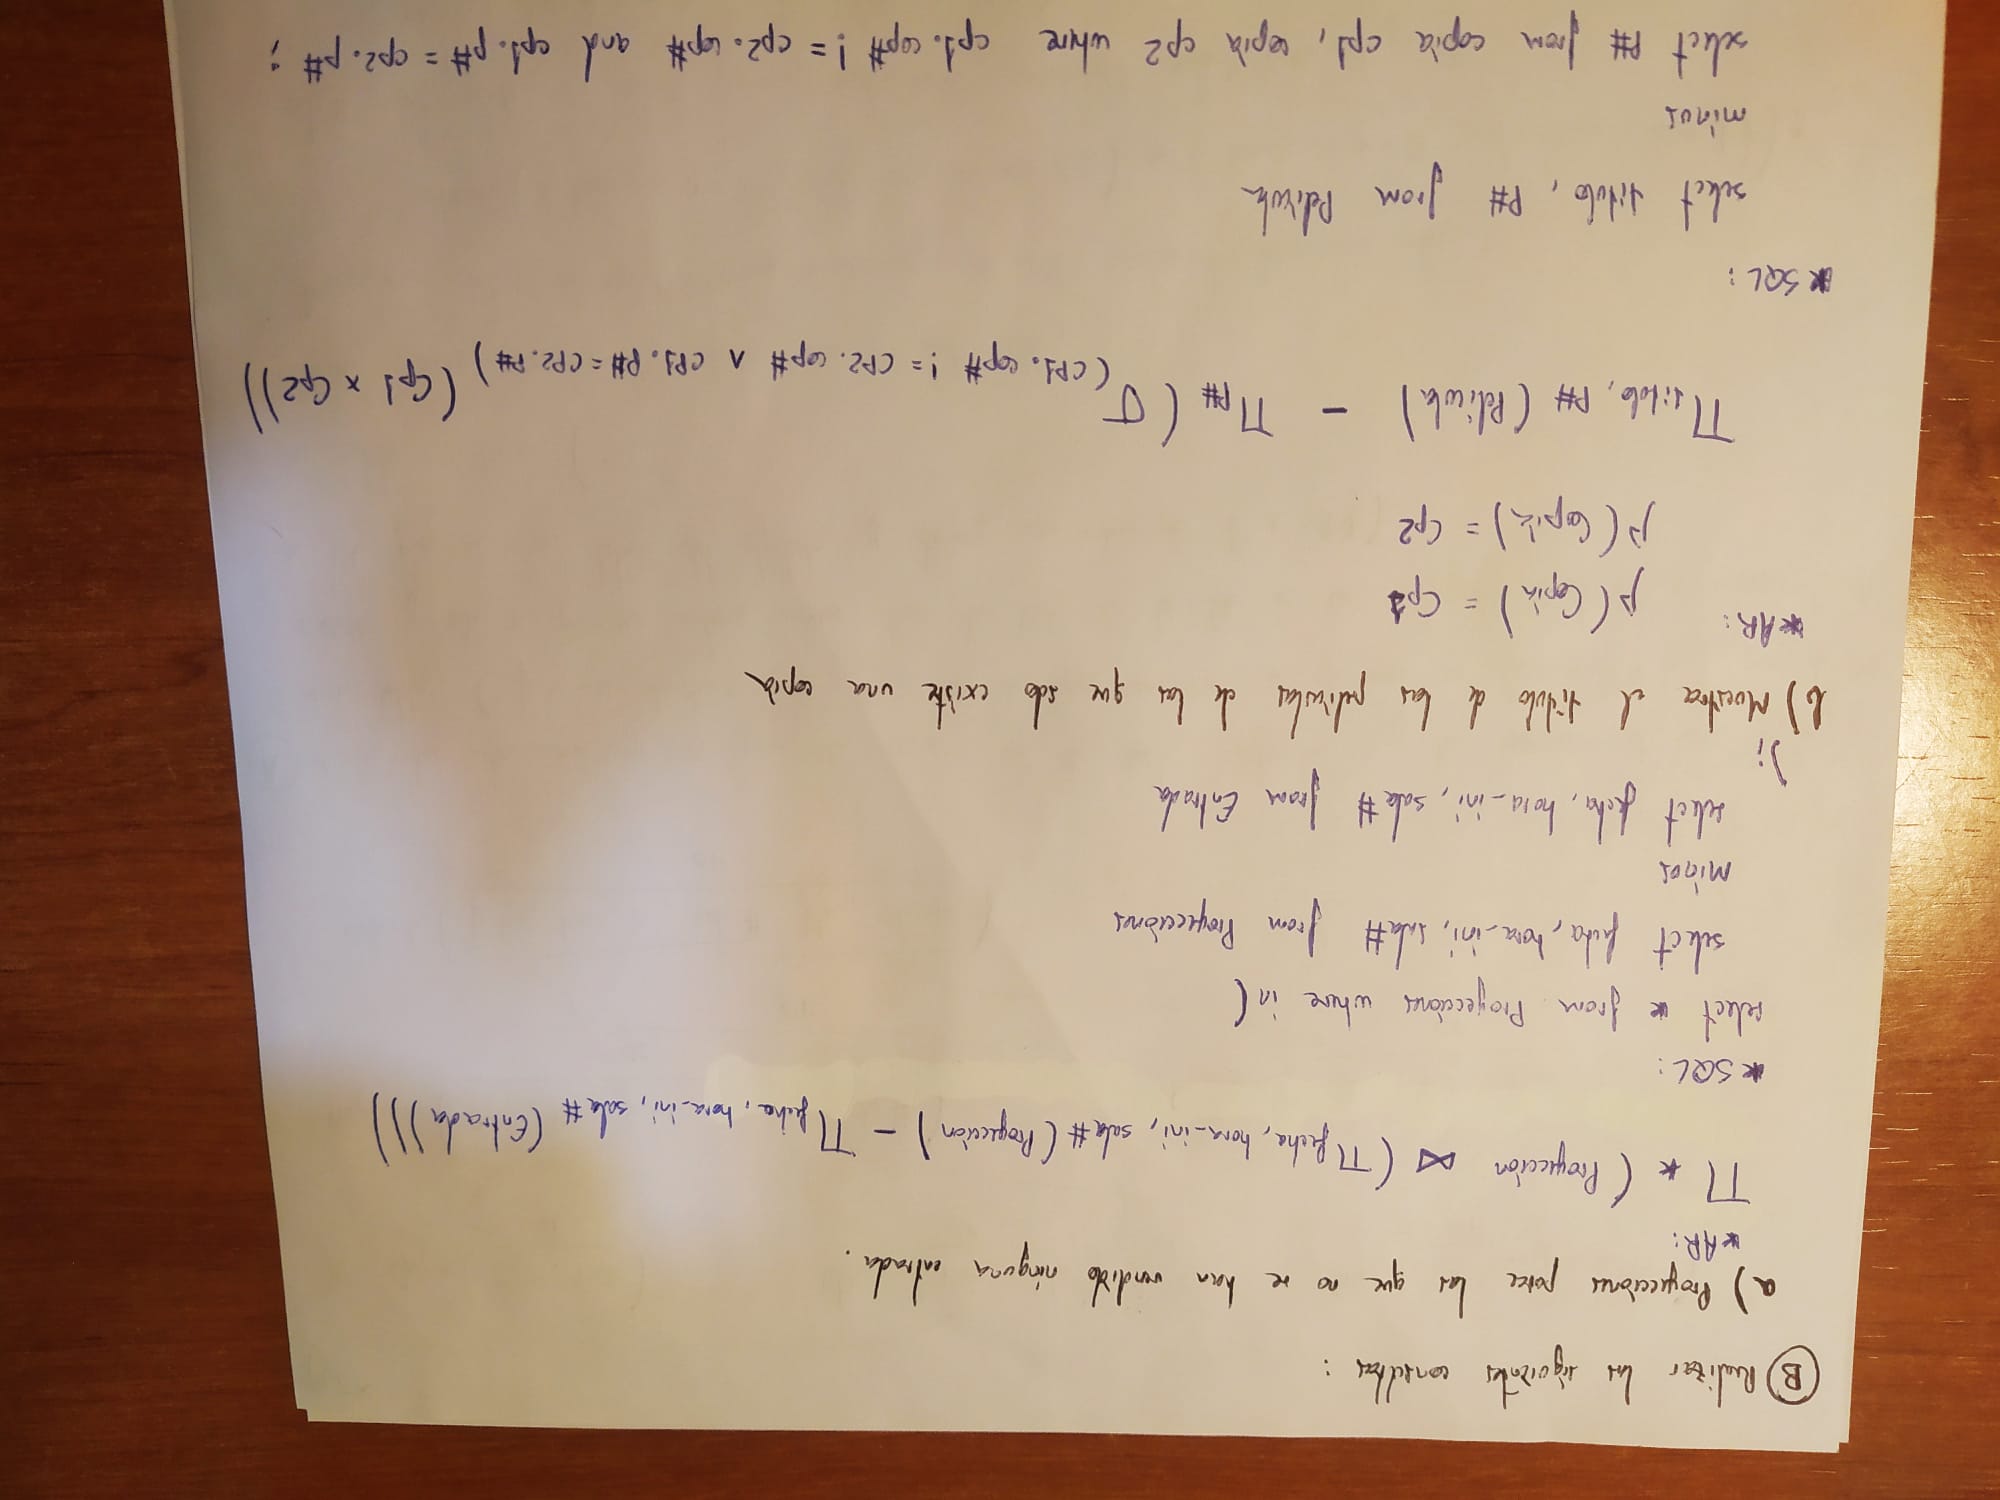 Ⓑ Realizar las siguientes consultas:
a) Proyecciones para las que no se han vendido ninguna entrada.
*AR:
Π * (Proyección ⋈ (Π fecha, hora-ini, sala# (Proyección) - Π fecha, hora-ini, sala# (Entrada)))
*SQL:
select * from Proyecciones where in (
select fecha, hora-ini, sala# from Proyecciones
minus
select fecha, hora-ini, sala# from Entrada
);
b) Muestra el título de las películas de las que solo existe una copia
*AR: ρ(Copia) = Cp1
ρ(Copia) = Cp2
Π título, P# (Película) - Π P# (σ (CP1.cop# != CP2.cop# ∧ CP1.P# = CP2.P#) (Cp1 × Cp2))
*SQL:
select título, P# from Película
minus
select P# from copia cp1, copia cp2 where cp1.cop# != cp2.cop# and cp1.p# = cp2.p#;